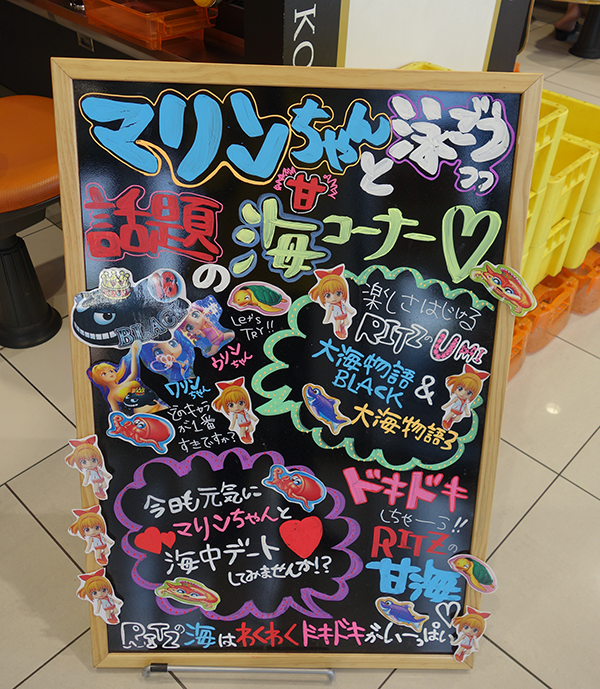 KO
マリンちゃんと泳ごうっっ
甘
話題の海コーナー♡
BLACK
Let's
TRY!!
ウリンちゃん
ワリンちゃん
どのキャラ
が1番
すきですか?
楽しさはじける
RITZのUMI
大海物語
BLACK &
大海物語3
今日も元気に
マリンちゃんと
海中デート
してみませんか!?
ドキドキ
しちゃーう!!
RITZの
甘海
RITZの海はわくわくドキドキがいーっぱい♡